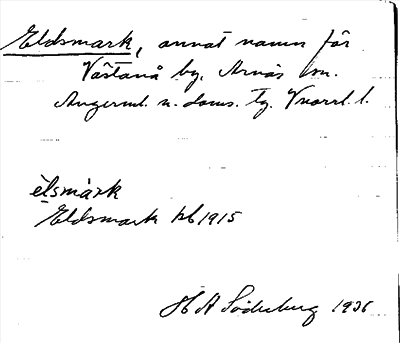 Eldsmark, annat namn för
Västanå by. Arnäs sn.
Ångerml. n. doms. tg. Vnorrl. l.
èlsmàrk
Eldsmark kb 1915
H A Söderberg 1936